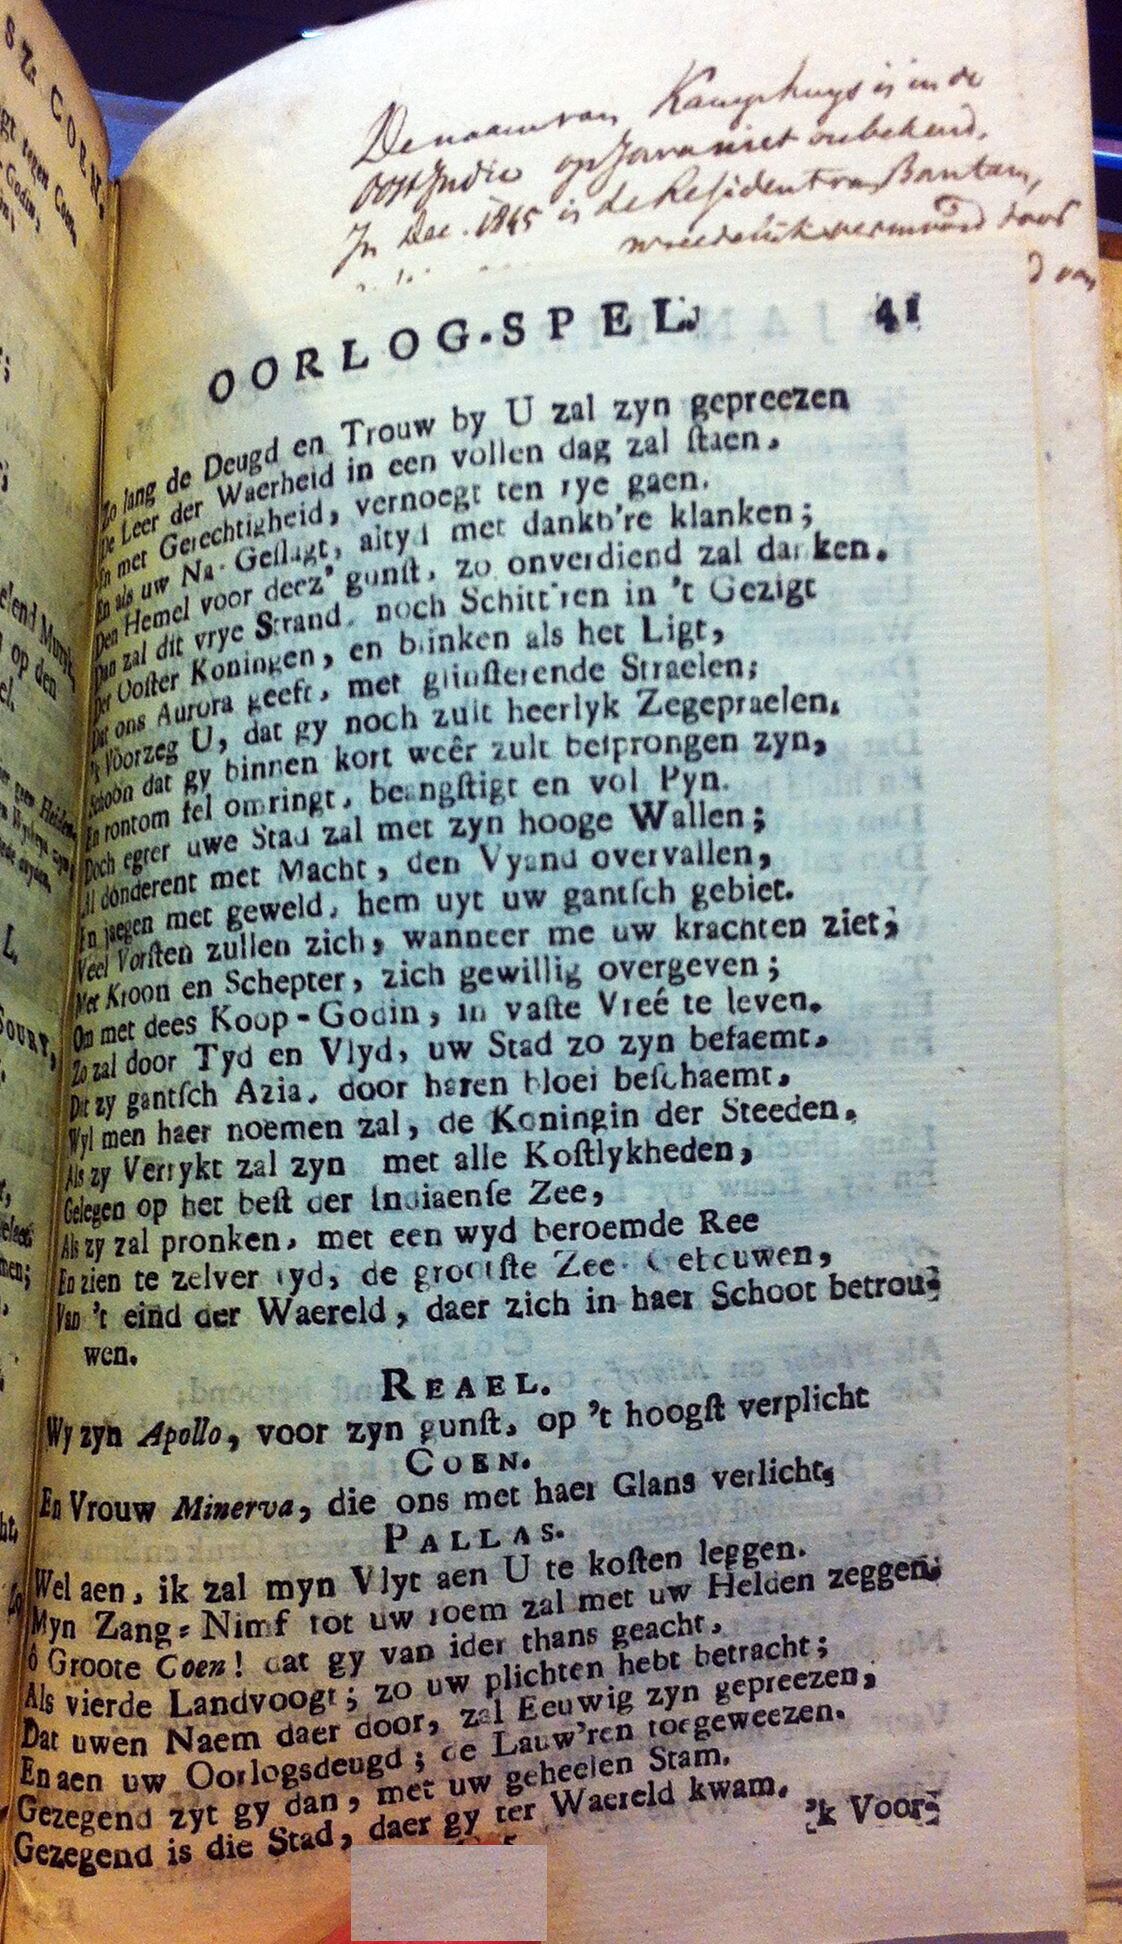 De naam van Kamphuys is in de
Oost Indie op Java niet onbekend.
In Dec. 1845 is de Resident van Bantam,
wreedelijk vermoord door
van
OORLOG-SPEL. 41
Zo lang de Deugd en Trouw by U zal zyn gepreezen
De Leer der Waerheid in een vollen dag zal ſtaen.
En met Gerechtigheid, vernoegt ten rye gaen.
En als uw Na-Geſlagt, altyd met dankb're klanken;
Den Hemel voor deez' gunſt, zo onverdiend zal danken.
Dan zal dit vrye Strand, noch Schitt'ren in 't Gezigt
Der Ooſter Koningen, en blinken als het Ligt,
Dat ons Aurora geeft, met glinſterende Straelen;
'k Voorzeg U, dat gy noch zult heerlyk Zegepraelen.
Schoon dat gy binnen kort weêr zult beſprongen zyn,
En rontom fel omringt, beangſtigt en vol Pyn.
Doch egter uwe Stad zal met zyn hooge Wallen;
Al donderent met Macht, den Vyand overvallen,
En jaegen met geweld, hem uyt uw gantſch gebiet.
Veel Vorſten zullen zich, wanneer me uw krachten ziet;
Met Kroon en Schepter, zich gewillig overgeven;
Om met dees Koop-Godin, in vaſte Vreé te leven.
Zo zal door Tyd en Vlyd, uw Stad zo zyn befaemt.
Dat zy gantſch Azia, door haren bloei beſchaemt.
Wyl men haer noemen zal, de Koningin der Steeden.
Als zy Verrykt zal zyn met alle Koſtlykheden,
Gelegen op het beſt der Indiaenſe Zee,
Als zy zal pronken, met een wyd beroemde Ree
En zien te zelver tyd, de grootſte Zee-Gebouwen,
Van 't eind der Waereld, daer zich in haer Schoot betrou-
wen.
REAEL.
Wy zyn Apollo, voor zyn gunſt, op 't hoogſt verplicht
COEN.
En Vrouw Minerva, die ons met haer Glans verlicht.
PALLAS.
Wel aen, ik zal myn Vlyt aen U te koſten leggen.
Myn Zang-Nimf tot uw roem zal met uw Helden zeggen.
ô Groote Coen! dat gy van ider thans geacht,
Als vierde Landvoogt; zo uw plichten hebt betracht;
Dat uwen Naem daer door, zal Eeuwig zyn gepreezen,
En aen uw Oorlogsdeugd; de Lauw'ren toegeweezen.
Gezegend zyt gy dan, met uw geheelen Stam.
Gezegend is die Stad, daer gy ter Waereld kwam.
'k Voor-